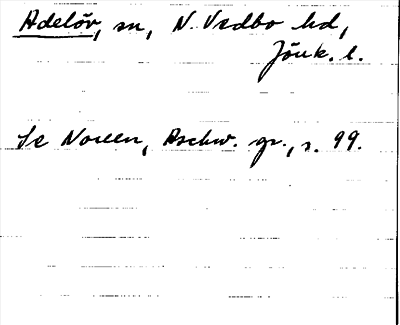 Adelöv, sn, N. Vedbo hd,
Jönk. l.
Se Noreen, Aschw. gr., s. 99.